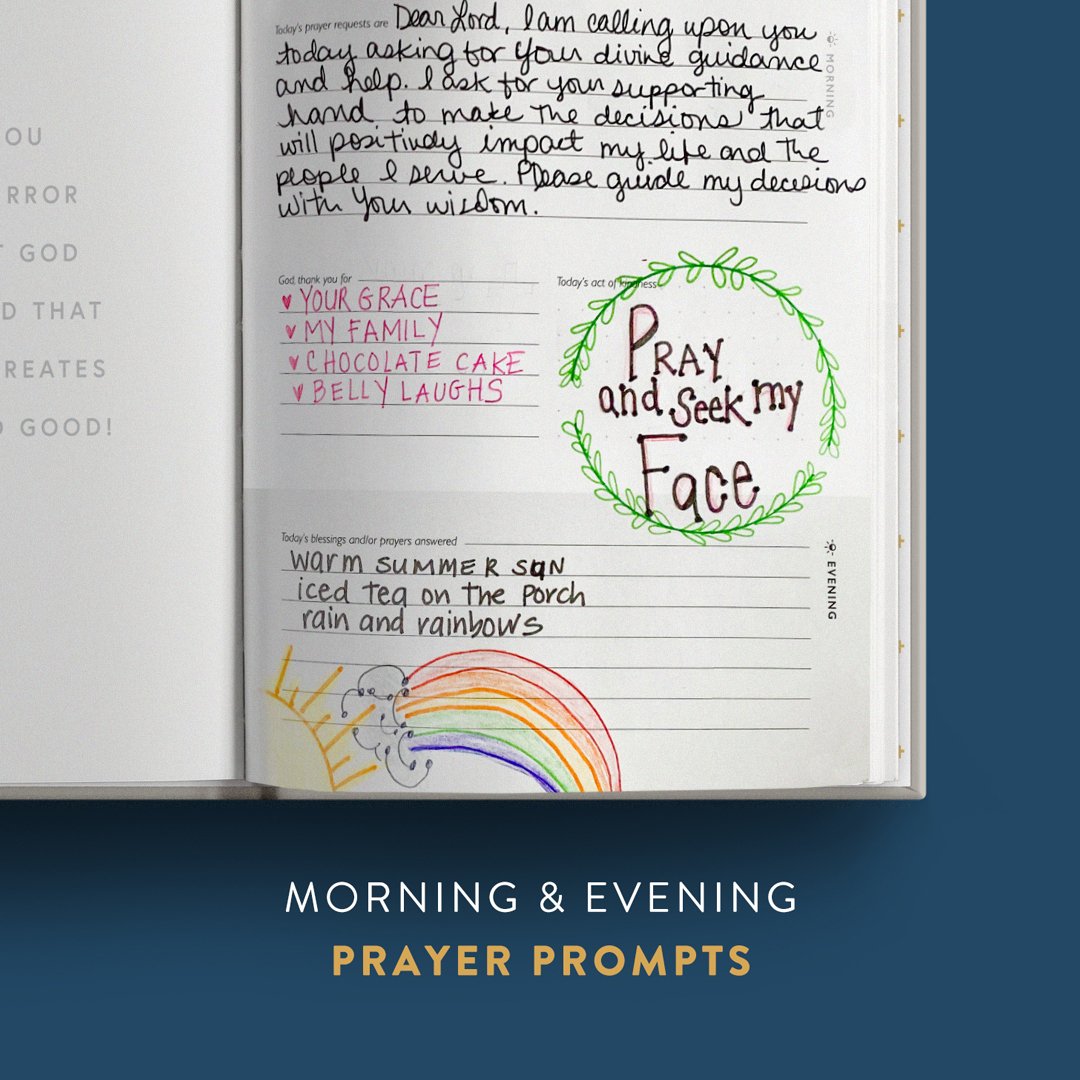 OU
RROR
T GOD
D THAT
REATES
D GOOD!
Today's prayer requests are Dear Lord, I am calling upon you
today asking for your divine guidance
and help. I ask for your supporting
hand to make the decisions that
will positively impact my life and the
people I serve. Please guide my decesions
with your wisdom.
MORNING
God, thank you for
YOUR GRACE
MY FAMILY
CHOCOLATE CAKE
BELLY LAUGHS
Today's act of kindness
PRAY
and seek my
Face
Today's blessings and/or prayers answered
warm SUMMER SUN
iced tea on the porch
rain and rainbows
EVENING
MORNING & EVENING
PRAYER PROMPTS